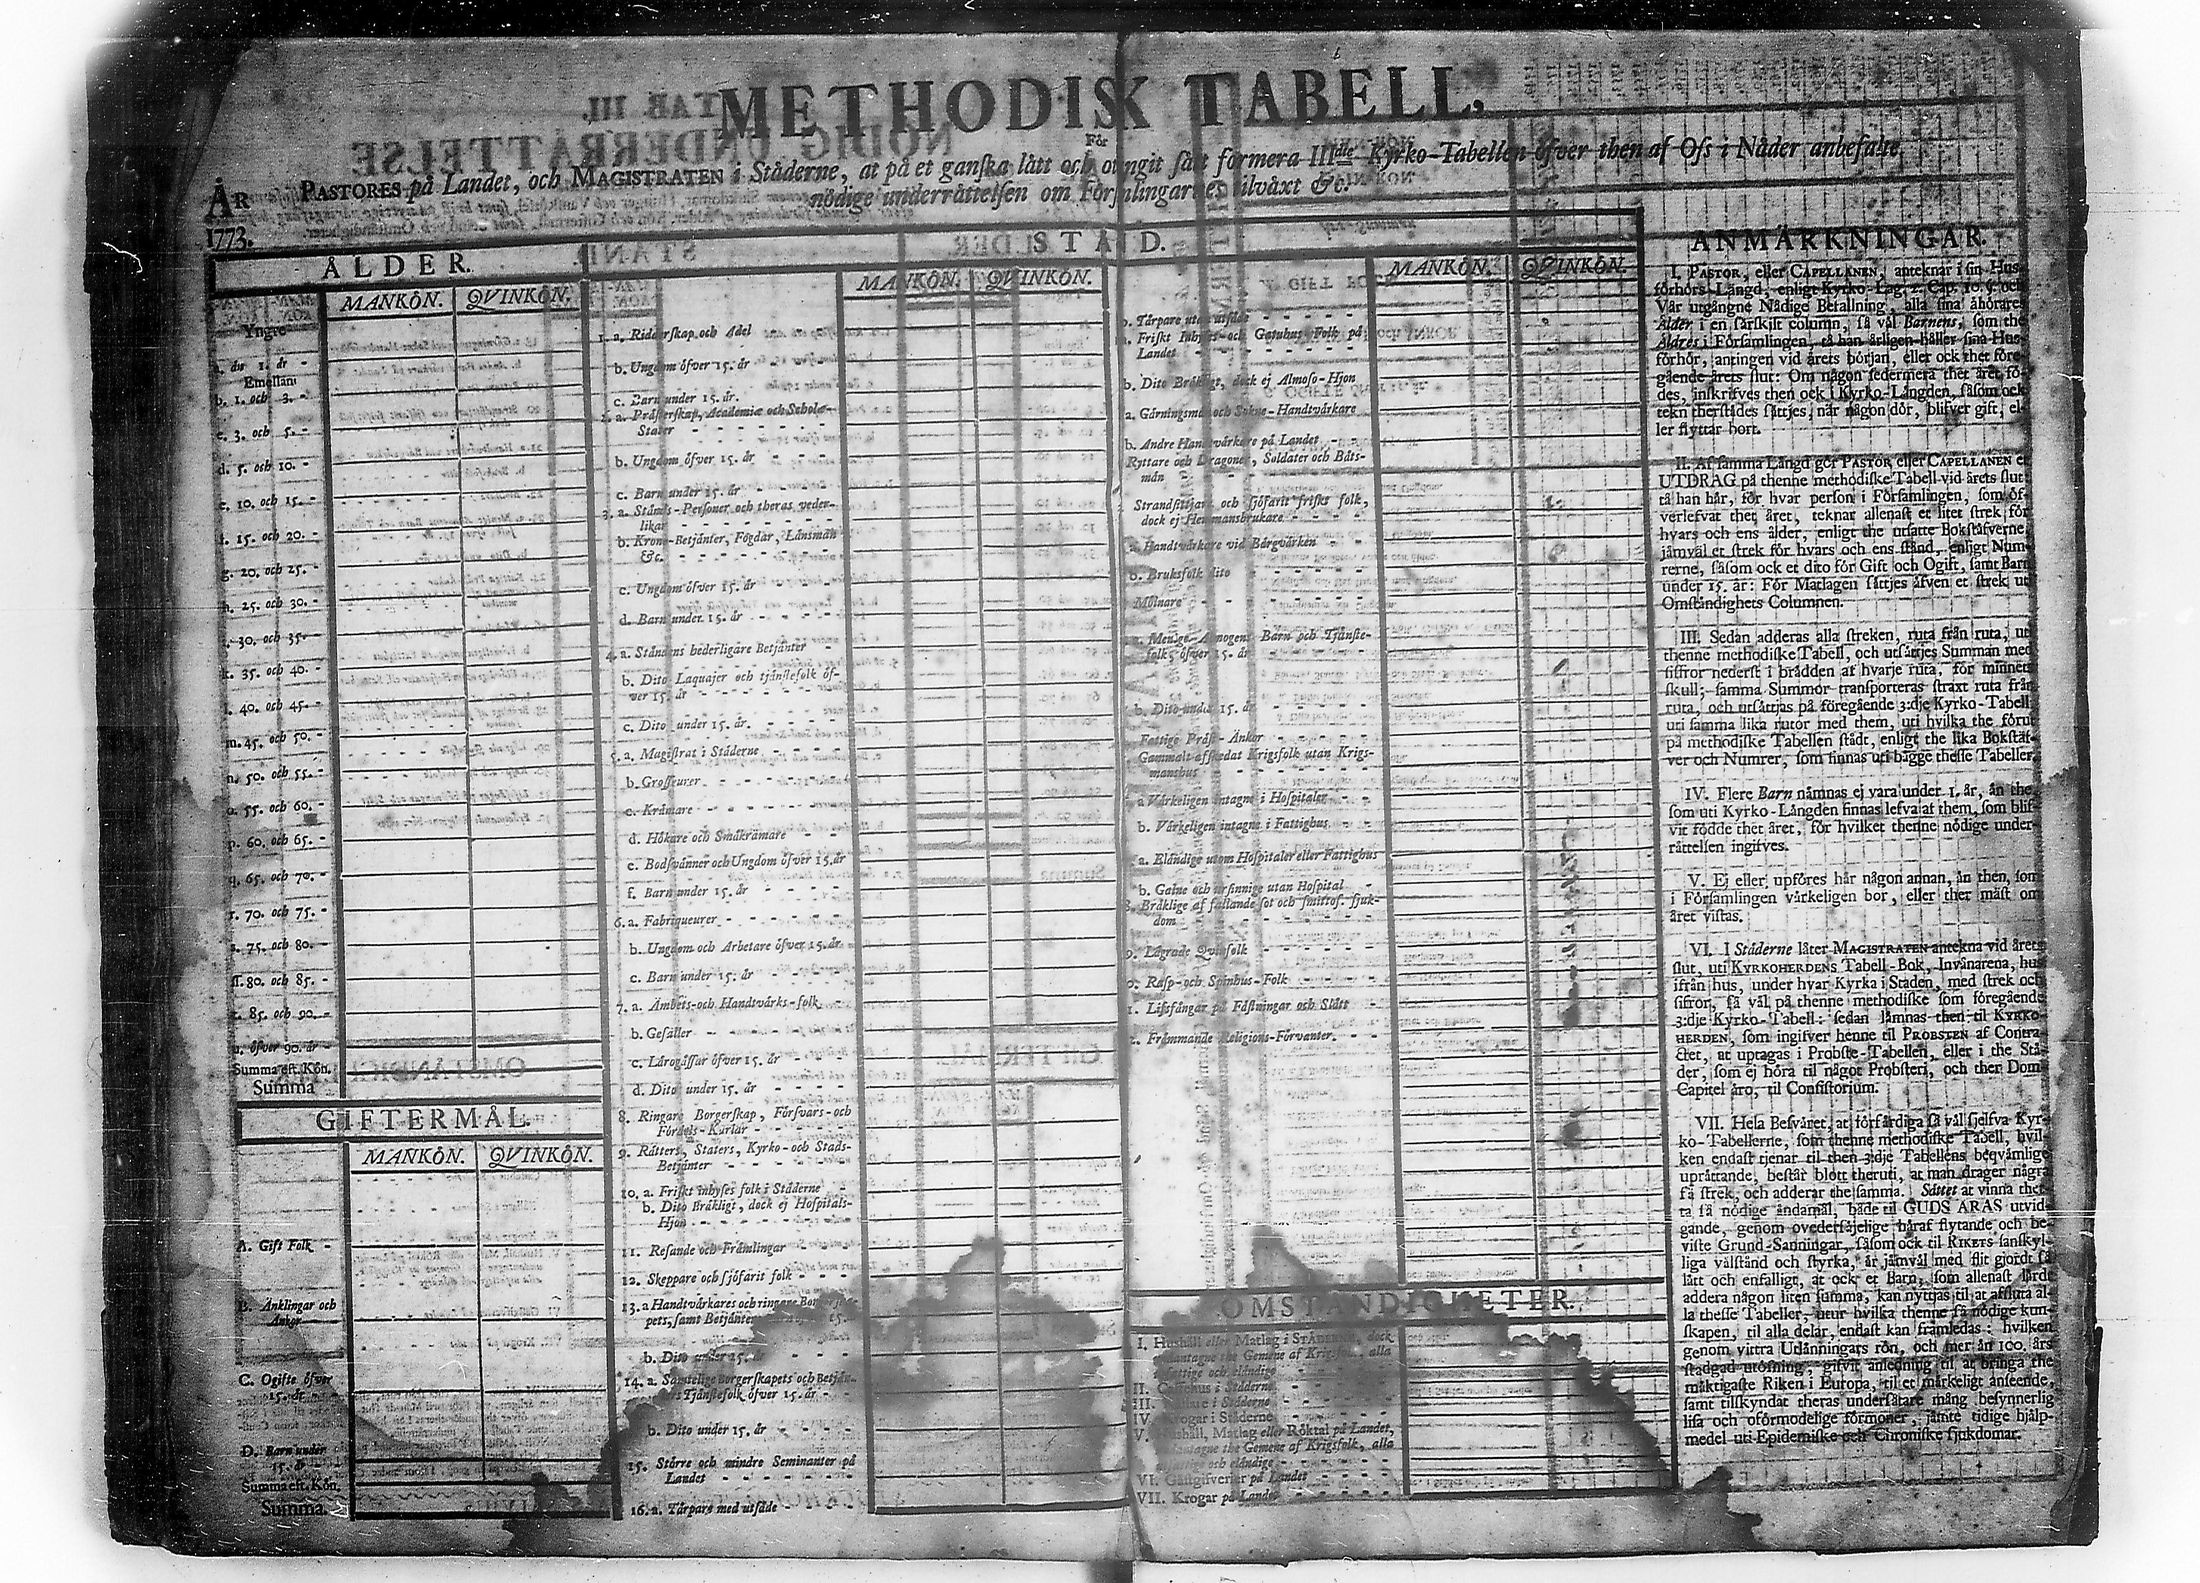 METHODISK TABELL,
För
PASTORES på Landet, och MAGISTRATEN i Städerne, at på et ganska lätt och otvngit sätt formera IIIdie Kyrko-Tabellen öfver then af Oss i Nåder anbefalte
nödige underrättelsen om Församlingarnes tilväxt &c.
ÅR
1773.
ÅLDER.
MANKÖN. QVINKÖN.
Yngre
a. än 1. år -
Emellan
b. 1. och 3. -
c. 3. och 5. -
d. 5. och 10. -
e. 10. och 15. -
f. 15. och 20. -
g. 20. och 25. -
h. 25. och 30. -
i. 30. och 35. -
k. 35. och 40. -
l. 40. och 45. -
m. 45. och 50. -
n. 50. och 55. -
o. 55. och 60. -
p. 60. och 65. -
q. 65. och 70. -
r. 70. och 75. -
s. 75. och 80. -
ss. 80. och 85. -
t. 85. och 90. -
u. öfver 90. år -
Summa eft. Kön.
Summa
GIFTERMÅL.
MANKÖN. QVINKÖN.
A. Gift Folk -
B. Änklingar och
Änkor
C. Ogifte öfver
15. år - -
D. Barn under
15. år -
Summa eft. Kön.
Summa.
STÅND.
MANKÖN. QVINKÖN.
1. a. Ridderskap och Adel
b. Ungdom öfver 15. år - - - -
c. Barn under 15. år.
2. a. Prästerskap, Academiæ och Scholæ-
Stater - - - - - - -
b. Ungdom öfver 15. år - - - -
c. Barn under 15. år - - - -
3. a. Stånds-Personer och theras veder-
likar - - - - - - -
b. Krono-Betjänter, Fogdar, Länsmän
&c. - - - - - - -
c. Ungdom öfver 15. år - - - -
d. Barn under 15. år - - - -
4. a. Ståndens hederligare Betjänter -
b. Dito Laquajer och tjänstefolk öf-
ver 15. år - - - - - -
c. Dito under 15. år. - - - -
5. a. Magistrat i Städerne - - - -
b. Grosseurer - - - - - -
c. Krämare - - - - - -
d. Hökare och Småkrämare - - -
e. Bodsvänner och Ungdom öfver 15. år
f. Barn under 15. år - - - -
6. a. Fabriqueurer - - - - - -
b. Ungdom och Arbetare öfver 15. år
c. Barn under 15. år - - - -
7. a. Ämbets-och Handtvärks-folk -
b. Gesäller - - - - - -
c. Lärogåssar öfver 15. år - - -
d. Dito under 15. år - - - -
8. Ringare Borgerskap, Försvars-och
Fördels-Karlar - - - - -
9. Rätters, Staters, Kyrko-och Stads-
Betjänter - - - - - -
10. a. Friskt inhyses folk i Städerne -
b. Dito Bräkligt, dock ej Hospitals-
Hjon - - - - - - -
11. Resande och Främlingar - - -
12. Skeppare och sjöfarit folk - - -
13. a Handtvärkares och ringare Borgerska-
pets, samt Betjänters Barn öfver 15. år
b. Dito under 15. år
14. a. Samtelige Borgerskapets och Betjän-
ters Tjänstefolk öfver 15. år - -
b. Dito under 15. år - - - -
15. Större och mindre Seminanter på
Landet - - - - - -
16. a. Tårpare med utsäde
MANKÖN. QVINKÖN.
b. Tårpare utan utsäde - - - -
Friskt Inhyses-och Gatuhus-Folk på
Landet - - - - - -
b. Dito Bräkligt, dock ej Almoso-Hjon
a. Gärningsmän och Sokne-Handtvärkare
b. Andre Handtvärkare på Landet - -
Ryttare och Dragoner, Soldater och Båts-
män - - - - - - -
Strandsittjare och sjöfarit friskt folk,
dock ej Hemmansbrukare - - - -
a. Handtvärkare vid Bärgvärken - -
b. Bruksfolk dito - - - - -
Mölnare - - - - - - -
a. Menige-Almogens Barn och Tjänste-
folk öfver 15. år - - - - -
b. Dito under 15. år - - - -
Fattige Präst-Änkor - - - -
Gammalt afskedat Krigsfolk utan Krigs-
manshus - - - - - -
a Värkeligen intagne i Hospitaler - -
b. Värkeligen intagne i Fattighus - -
a. Eländige utom Hospitaler eller Fattighus
b. Galne och ursinnige utan Hospital -
Bräklige af fallande sot och smittos. sjuk-
dom - - - - - - -
Lägrade Qvinfolk - - - - -
Rasp-och Spinhus-Folk - - - -
Lifsfångar på Fästningar och Slått -
Främmande Religions-Förvanter. - - -
OMSTÄNDIGHETER.
I. Hushåll eller Matlag i STÄDERNE, dock
undantagne the Gemene af Krigsfolk, alla
fattige och eländige
II. Gästgifvehus i Städerne - - - -
III. Källare i Städerne - - - -
IV. Krogar i Städerne - - - -
V. Hushåll, Matlag eller Röktal på Landet,
undantagne the Gemene af Krigsfolk, alla
fattige och eländige - - - -
VI. Gästgifverier på Landet - - - -
VII. Krogar på Landet - - - -
ANMÄRKNINGAR.
I. PASTOR, eller CAPELLANEN, anteknar i sin Hus-
förhörs-Längd, enligt Kyrko-Lag. 2. Cap. 10. §. och
Vår utgångne Nådige Befallning, alla sina åhörares
Ålder i en särskilt column, så väl Barnens, som the
Äldres i Församlingen, tå han årligen håller sina Hus-
förhör, antingen vid årets början, eller ock thet före-
gående årets slut: Om någon sedermera thet året fö-
des, inskrifves then ock i Kyrko-Längden, såsom ock
tekn therstädes sättjes, när någon dör, blifver gift, el-
ler flyttar bort.
II. Af samma Längd gör PASTOR eller CAPELLANEN et
UTDRAG på thenne methodiske Tabell vid årets slut
tå han här, för hvar person i Församlingen, som öf-
verlefvat thet året, teknar allenast et litet strek för
hvars och ens ålder, enligt the utsatte Bokstäfverne,
jämväl et strek för hvars och ens stånd, enligt Num-
rerne, såsom ock et dito för Gift och Ogift, samt Barn
under 15. år: För Matlagen sättjes äfven et strek uti
Omständighets Columnen.
III. Sedan adderas alla streken, ruta från ruta, uti
thenne methodiske Tabell, och utsättjes Summan med
siffror nederst i brädden af hvarje ruta, för minnets
skull; samma Summor transporteras straxt ruta från
ruta, och utsättjas på föregående 3:dje Kyrko-Tabell
uti samma lika rutor med them, uti hvilka the förut
på methodiske Tabellen stådt, enligt the lika Bokstäf-
ver och Numrer, som finnas uti bägge thesse Tabeller.
IV. Flere Barn nämnas ej vara under 1. år, än the,
som uti Kyrko-Längden finnas lefva af them, som blif-
vit födde thet året, för hvilket thenne nödige under-
rättelsen ingifves.
V. Ej eller upföres här någon annan, än then, som
i Församlingen värkeligen bor, eller ther mäst om
året vistas.
VI. I Städerne låter MAGISTRATEN antekna vid årets
slut, uti KYRKOHERDENS Tabell-Bok, Invånarena, hus
ifrån hus, under hvar Kyrka i Staden, med strek och
sifror, så väl på thenne methodiske som föregående
3:dje Kyrko-Tabell: sedan lämnas then til KYRKO-
HERDEN, som ingifver henne til PROBSTEN af Contra-
ctet, at uptagas i Probste-Tabellen, eller i the Stä-
der, som ej höra til något Probsteri, och ther Dom-
Capitel äro, til Consistorium.
VII. Hela Besväret, at förfärdiga så väl sjelfva Kyr-
ko-Tabellerne, som thenne methodiske Tabell, hvil-
ken endast tjenar til then 3:dje Tabellens beqvämlige
uprättande, består blott theruti, at man drager några
få strek, och adderar the samma. Sättet at vinna thet-
ta så nödige ändamål, både til GUDS ÄRAS utvid-
gande, genom ovedersäjelige häraf flytande och be-
viste Grund-Sanningar, såsom ock til RIKETS sanskyl-
liga välstånd och styrka, är jämväl med flit gjordt så
lätt och enfalligt, at ock et Barn, som allenast lärdt
addera någon liten summa, kan nyttjas til at afsluta al-
la thesse Tabeller, utur hvilka thenne så nödige kun-
skapen, til alla delar, endast kan framledas: hvilken
genom vittra Utlänningars rön, och mer än 100. års
stadgad utöfning, gifvit anledning til at bringa the
mäktigaste Riken i Europa, til et märkeligt anseende,
samt tillskyndat theras undersåtare mång besynnerlig
lisa och oförmodelige förmoner, jämte tidige hjälp-
medel uti Epidemiske och Chroniske sjukdomar.